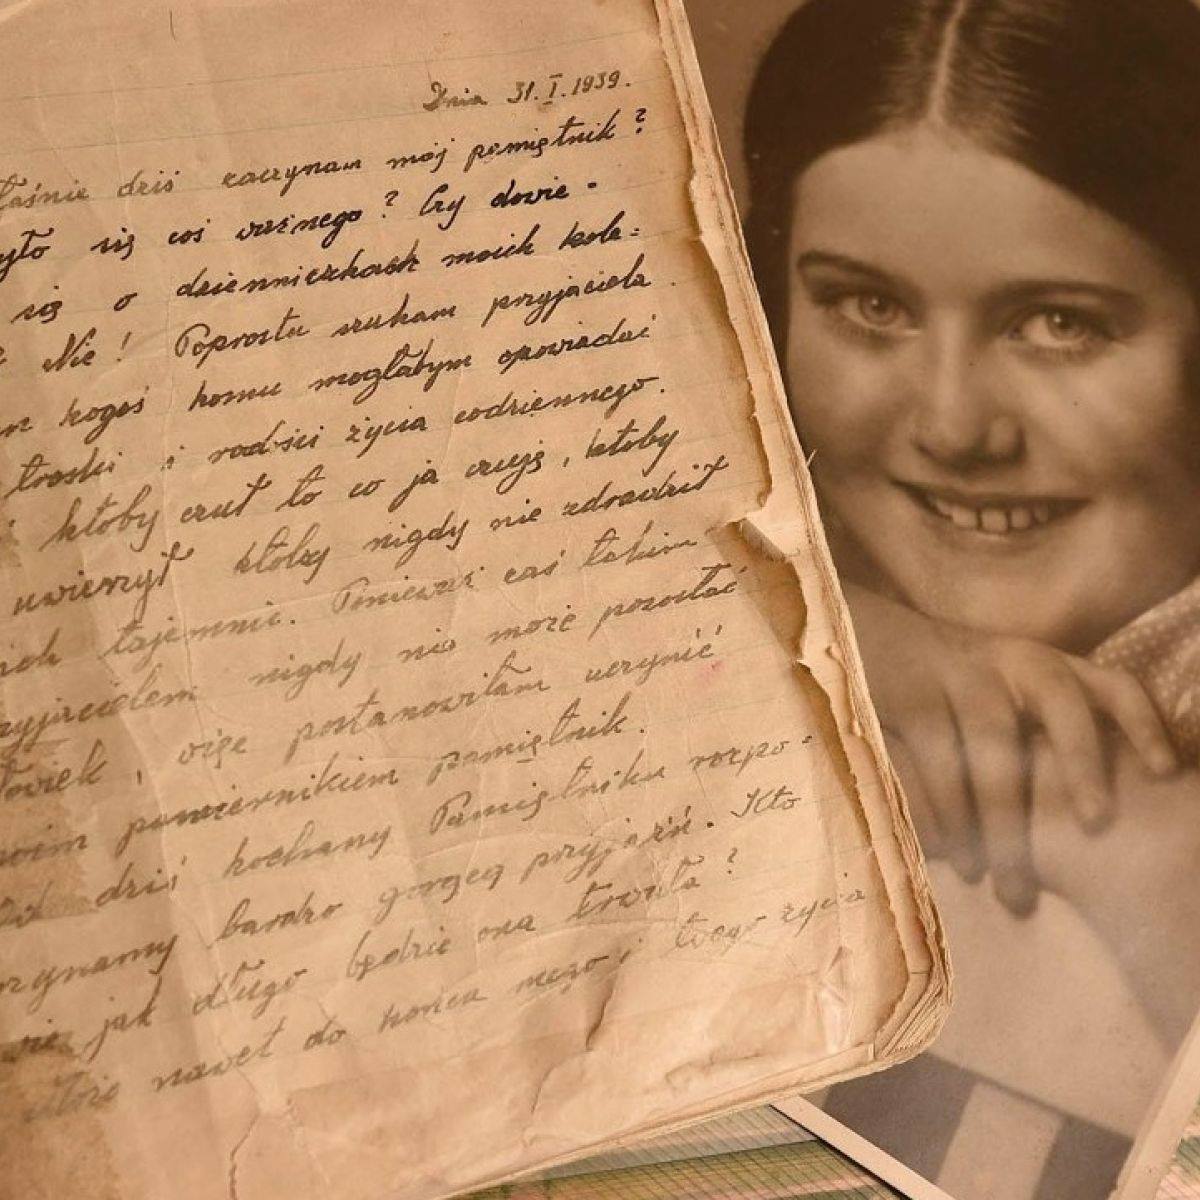 Dnia 31.I.1939.
właśnie dziś zaczynam mój pamiętnik?
yło się coś ważnego? Czy dowie-
się o dzienniczkach moich kole=
Nie! Poprostu szukam przyjaciela.
kogoś komu mogłabym opowiadać
troski i radości życia codziennego.
ktoby czuł to co ja czuję, ktoby
uwierzył ktoby nigdy nie zdradził
ich tajemnic. Ponieważ coś takim
zyjacielem nigdy nie może pozostać
łowiek, więc postanowiłam uczynić
moim powiernikiem pamiętnik.
Od dziś kochany Pamiętniku rozpo=
czynamy bardzo gorącą przyjaźń. Kto
wie jak długo będzie ona trwała?
Może nawet do końca mego i twego życia